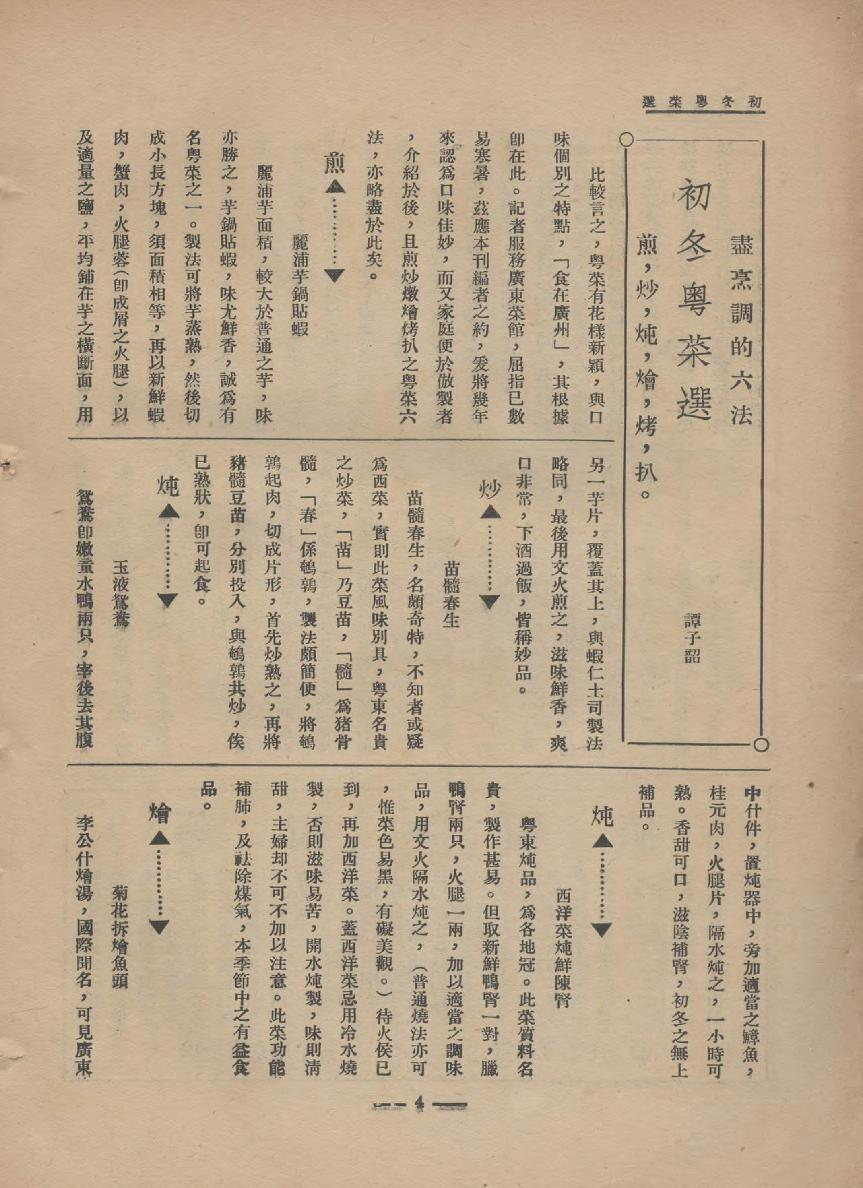 初冬粵菜選
盡烹調的六法
初冬粵菜選
煎，炒，炖，燴，烤，扒。
譚子韶
比較言之，粵菜有花樣新穎，與口
味個別之特點，「食在廣州」，其根據
卽在此。記者服務廣東菜館，屈指已數
易寒暑，茲應本刊編者之約，爰將幾年
來認爲口味佳妙，而又家庭便於倣製者
，介紹於後，且煎炒燉燴烤扒之粵菜六
法，亦略盡於此矣。
煎▲………▼
麗浦芋鍋貼蝦
麗浦芋面積，較大於普通之芋，味
亦勝之，芋鍋貼蝦，味尤鮮香，誠爲有
名粵菜之一。製法可將芋蒸熟，然後切
成小長方塊，須面積相等，再以新鮮蝦
肉，蟹肉，火腿蓉（卽成屑之火腿），以
及適量之鹽，平均鋪在芋之橫斷面，用
另一芋片，覆蓋其上，與蝦仁土司製法
略同，最後用文火煎之，滋味鮮香，爽
口非常，下酒過飯，皆稱妙品。
炒▲………▼
苗髓春生
苗髓春生，名頗奇特，不知者或疑
爲西菜，實則此菜風味別具，粵東名貴
之炒菜，「苗」乃豆苗，「髓」爲猪骨
髓，「春」係鵪鶉，製法頗簡便，將鵪
鶉起肉，切成片形，首先炒熟之，再將
豬髓豆苗，分別投入，與鵪鶉共炒，俟
已熟狀，卽可起食。
炖▲………▼
玉液鴛鴦
鴛鴦卽嫩童水鴨兩只，宰後去其腹
中什件，置炖器中，旁加適當之鱆魚，
桂元肉，火腿片，隔水炖之，一小時可
熟。香甜可口，滋陰補腎，初冬之無上
補品。
炖▲………▼
西洋菜炖鮮陳腎
粵東炖品，爲各地冠。此菜質料名
貴，製作甚易。但取新鮮鴨腎一對，臘
鴨腎兩只，火腿一兩，加以適當之調味
品，用文火隔水炖之，（普通燒法亦可
，惟菜色易黑，有礙美觀。）待火侯已
到，再加西洋菜。蓋西洋菜忌用冷水燒
製，否則滋味易苦，開水炖製，味則清
甜，主婦却不可不加以注意。此菜功能
補肺，及祛除煤氣，本季節中之有益食
品。
燴▲………▼
菊花拆燴魚頭
李公什燴湯，國際聞名，可見廣東
4